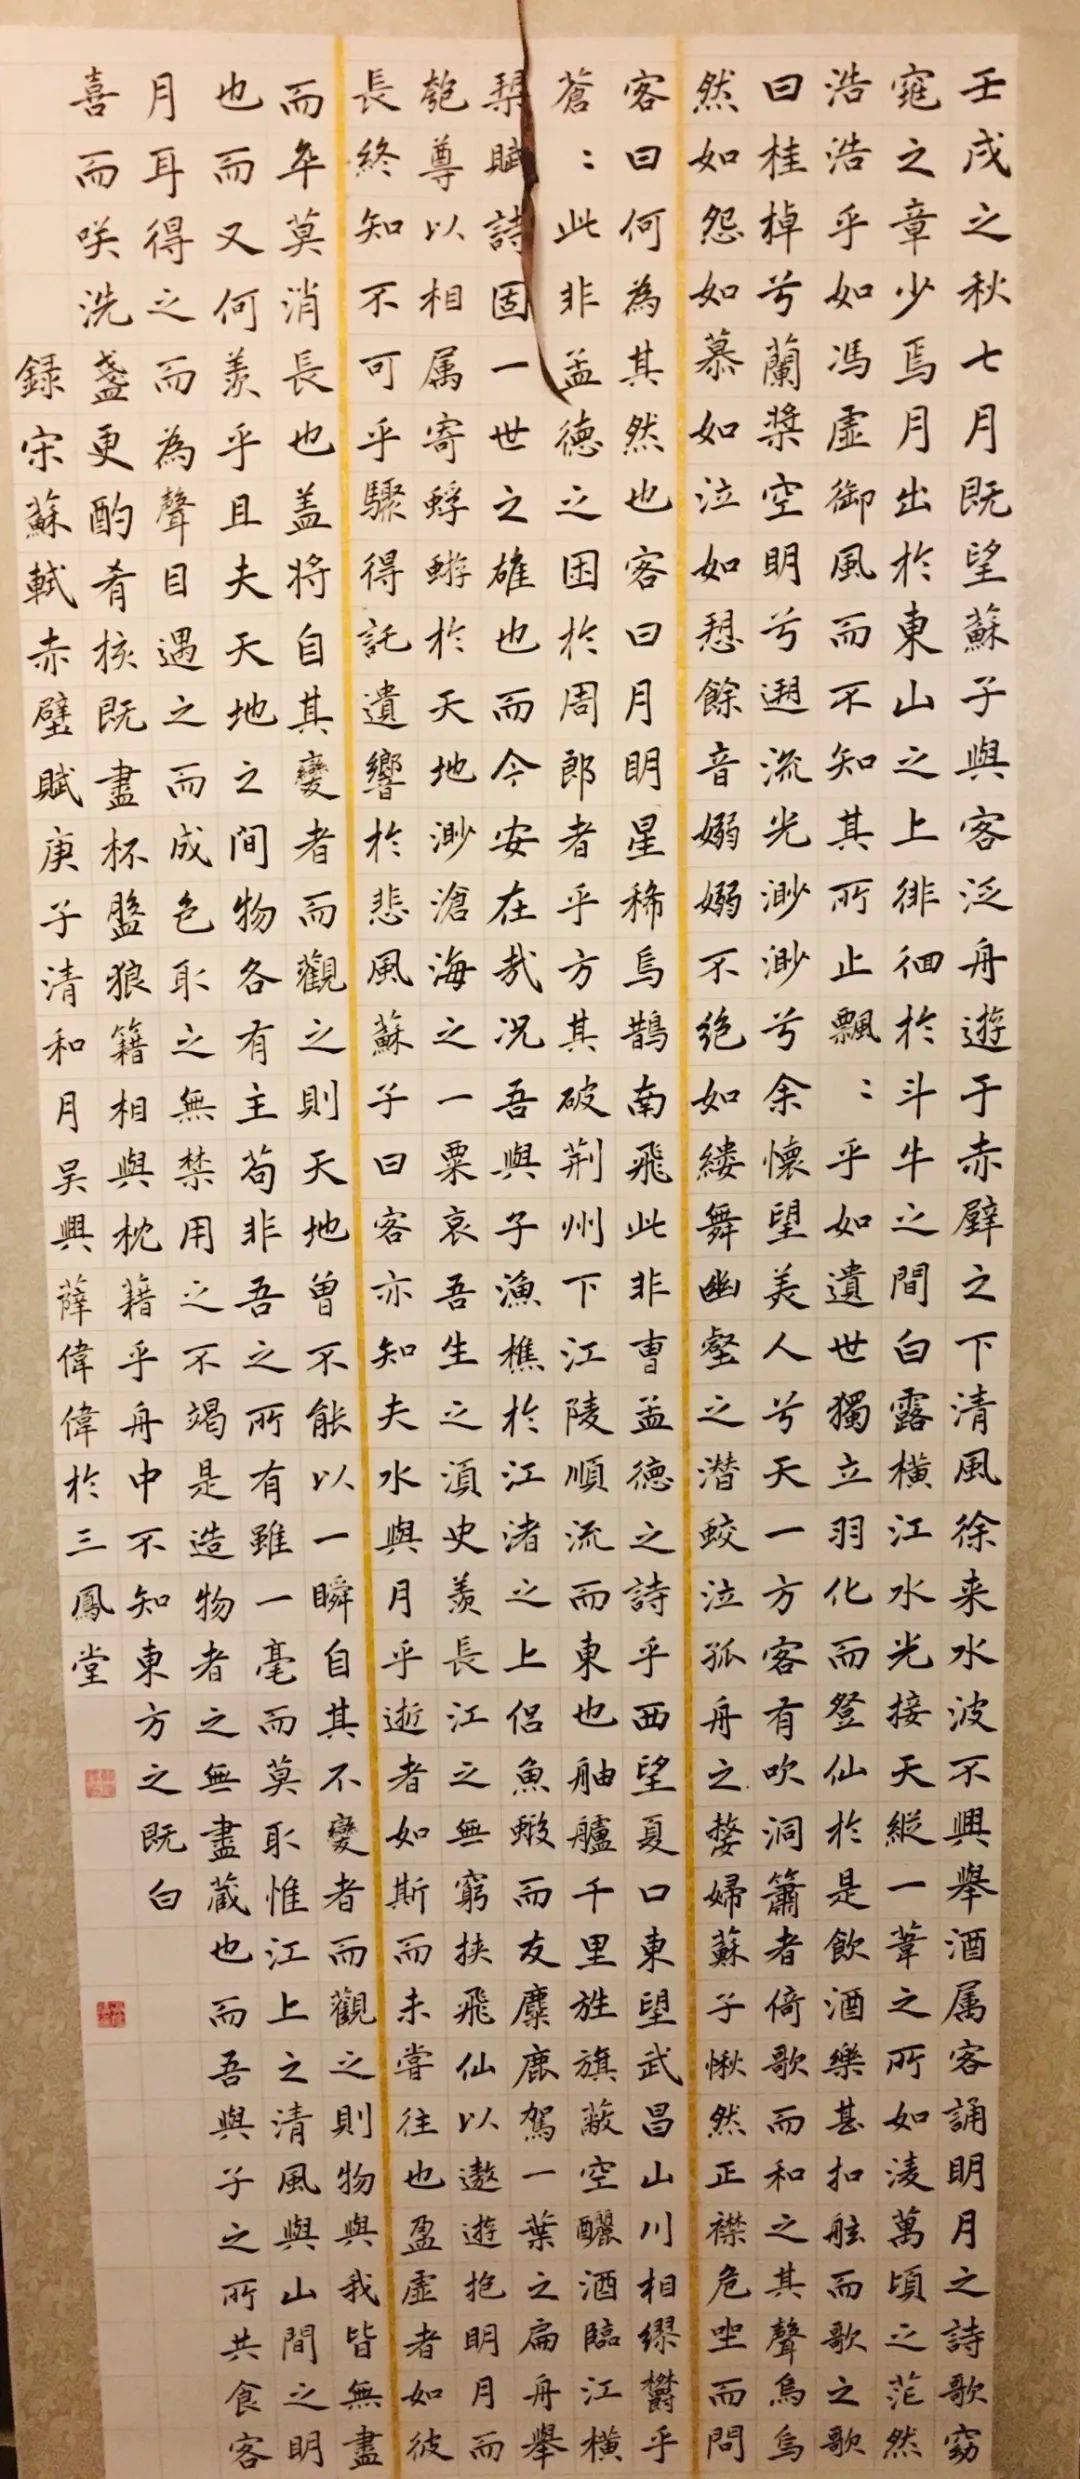 壬戌之秋七月既望蘇子與客泛舟遊于赤壁之下清風徐来水波不興舉酒属客誦明月之詩歌窈
窕之章少焉月出於東山之上徘徊於斗牛之間白露横江水光接天縱一葦之所如淩萬頃之茫然
浩浩乎如馮虚御風而不知其所止飄：乎如遺世獨立羽化而登仙於是飲酒樂甚扣舷而歌之歌
曰桂棹兮蘭槳空明兮遡流光渺渺兮余懷望美人兮天一方客有吹洞簫者倚歌而和之其聲烏烏
然如怨如慕如泣如愬餘音嫋嫋不絶如縷舞幽壑之潜蛟泣孤舟之嫠婦蘇子愀然正襟危坐而問
客曰何為其然也客曰月明星稀烏鵲南飛此非曹孟德之詩乎西望夏口東望武昌山川相繆欝乎
蒼：此非孟德之困於周郎者乎方其破荆州下江陵順流而東也舳艫千里旌旗蔽空釃酒臨江横
槊賦詩固一世之雄也而今安在哉况吾與子漁樵於江渚之上侶魚蝦而友麋鹿駕一葉之扁舟舉
匏尊以相属寄蜉蝣於天地渺滄海之一粟哀吾生之湏臾羨長江之無窮挟飛仙以遨遊抱明月而
長終知不可乎驟得託遺響於悲風蘇子曰客亦知夫水與月乎逝者如斯而未嘗往也盈虚者如彼
而卒莫消長也盖将自其變者而觀之則天地曽不能以一瞬自其不變者而觀之則物與我皆無盡
也而又何羨乎且夫天地之間物各有主苟非吾之所有雖一毫而莫取惟江上之清風與山間之明
月耳得之而為聲目遇之而成色取之無禁用之不竭是造物者之無盡蔵也而吾與子之所共食客
喜而咲洗盞更酌肴核既盡杯盤狼籍相與枕藉乎舟中不知東方之既白
録宋蘇軾赤壁賦庚子清和月吴興薛偉偉於三鳳堂